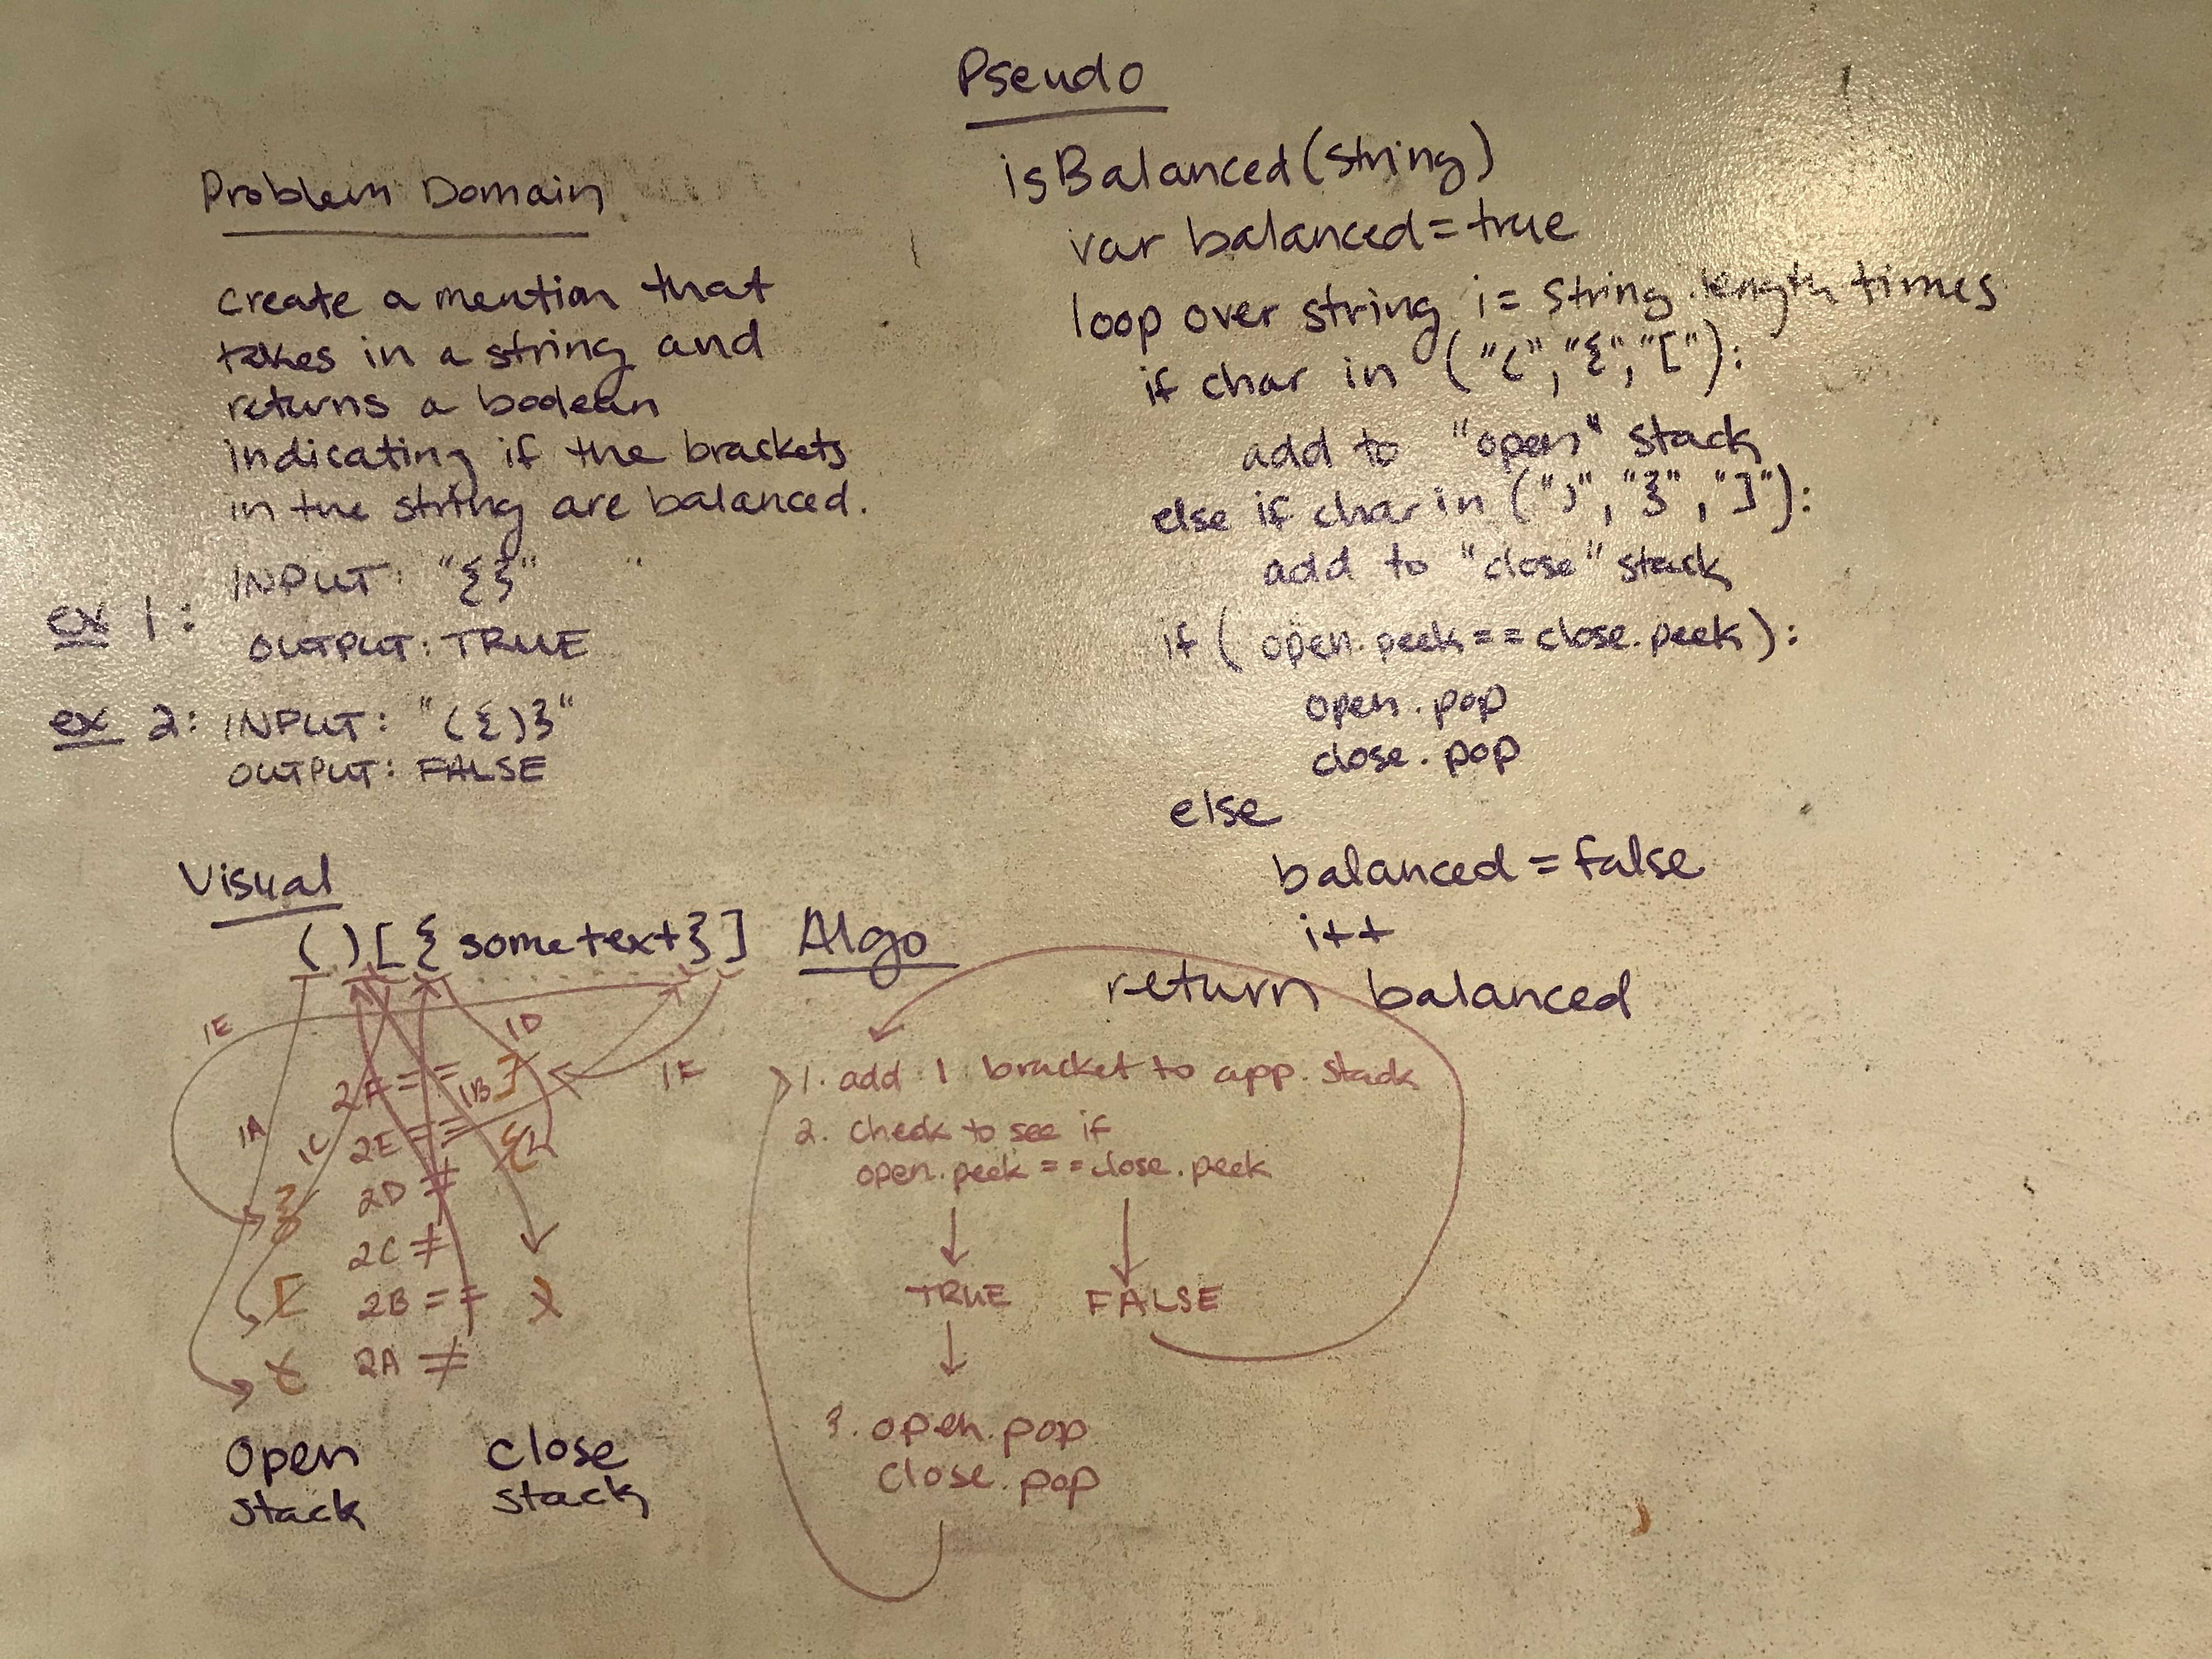 Problem Domain
create a mention that
takes in a string and
returns a boolean
indicating if the brackets
in the string are balanced.
ex 1:
INPUT: "{}" "
OUTPUT: TRUE
ex 2: INPUT: "({)}"
OUTPUT: FALSE
Visual
()[{some text}]
1E
1D
1F
1A
1C
1B
2F ==
}
2E ==
{
2D ≠
2C ≠
[
2B ==
)
2A ≠
(
Open
stack
close
stack
Pseudo
isBalanced(string)
var balanced = true
loop over string i = string.length times
if char in ("(", "{", "["):
add to "open" stack
else if char in (")", "}", "]"):
add to "close" stack
if (open.peek == close.peek):
open.pop
close.pop
else
balanced = false
i++
return balanced
Algo
1. add 1 bracket to app. stack
2. check to see if
open.peek == close.peek
TRUE FALSE
3. open.pop
close.pop